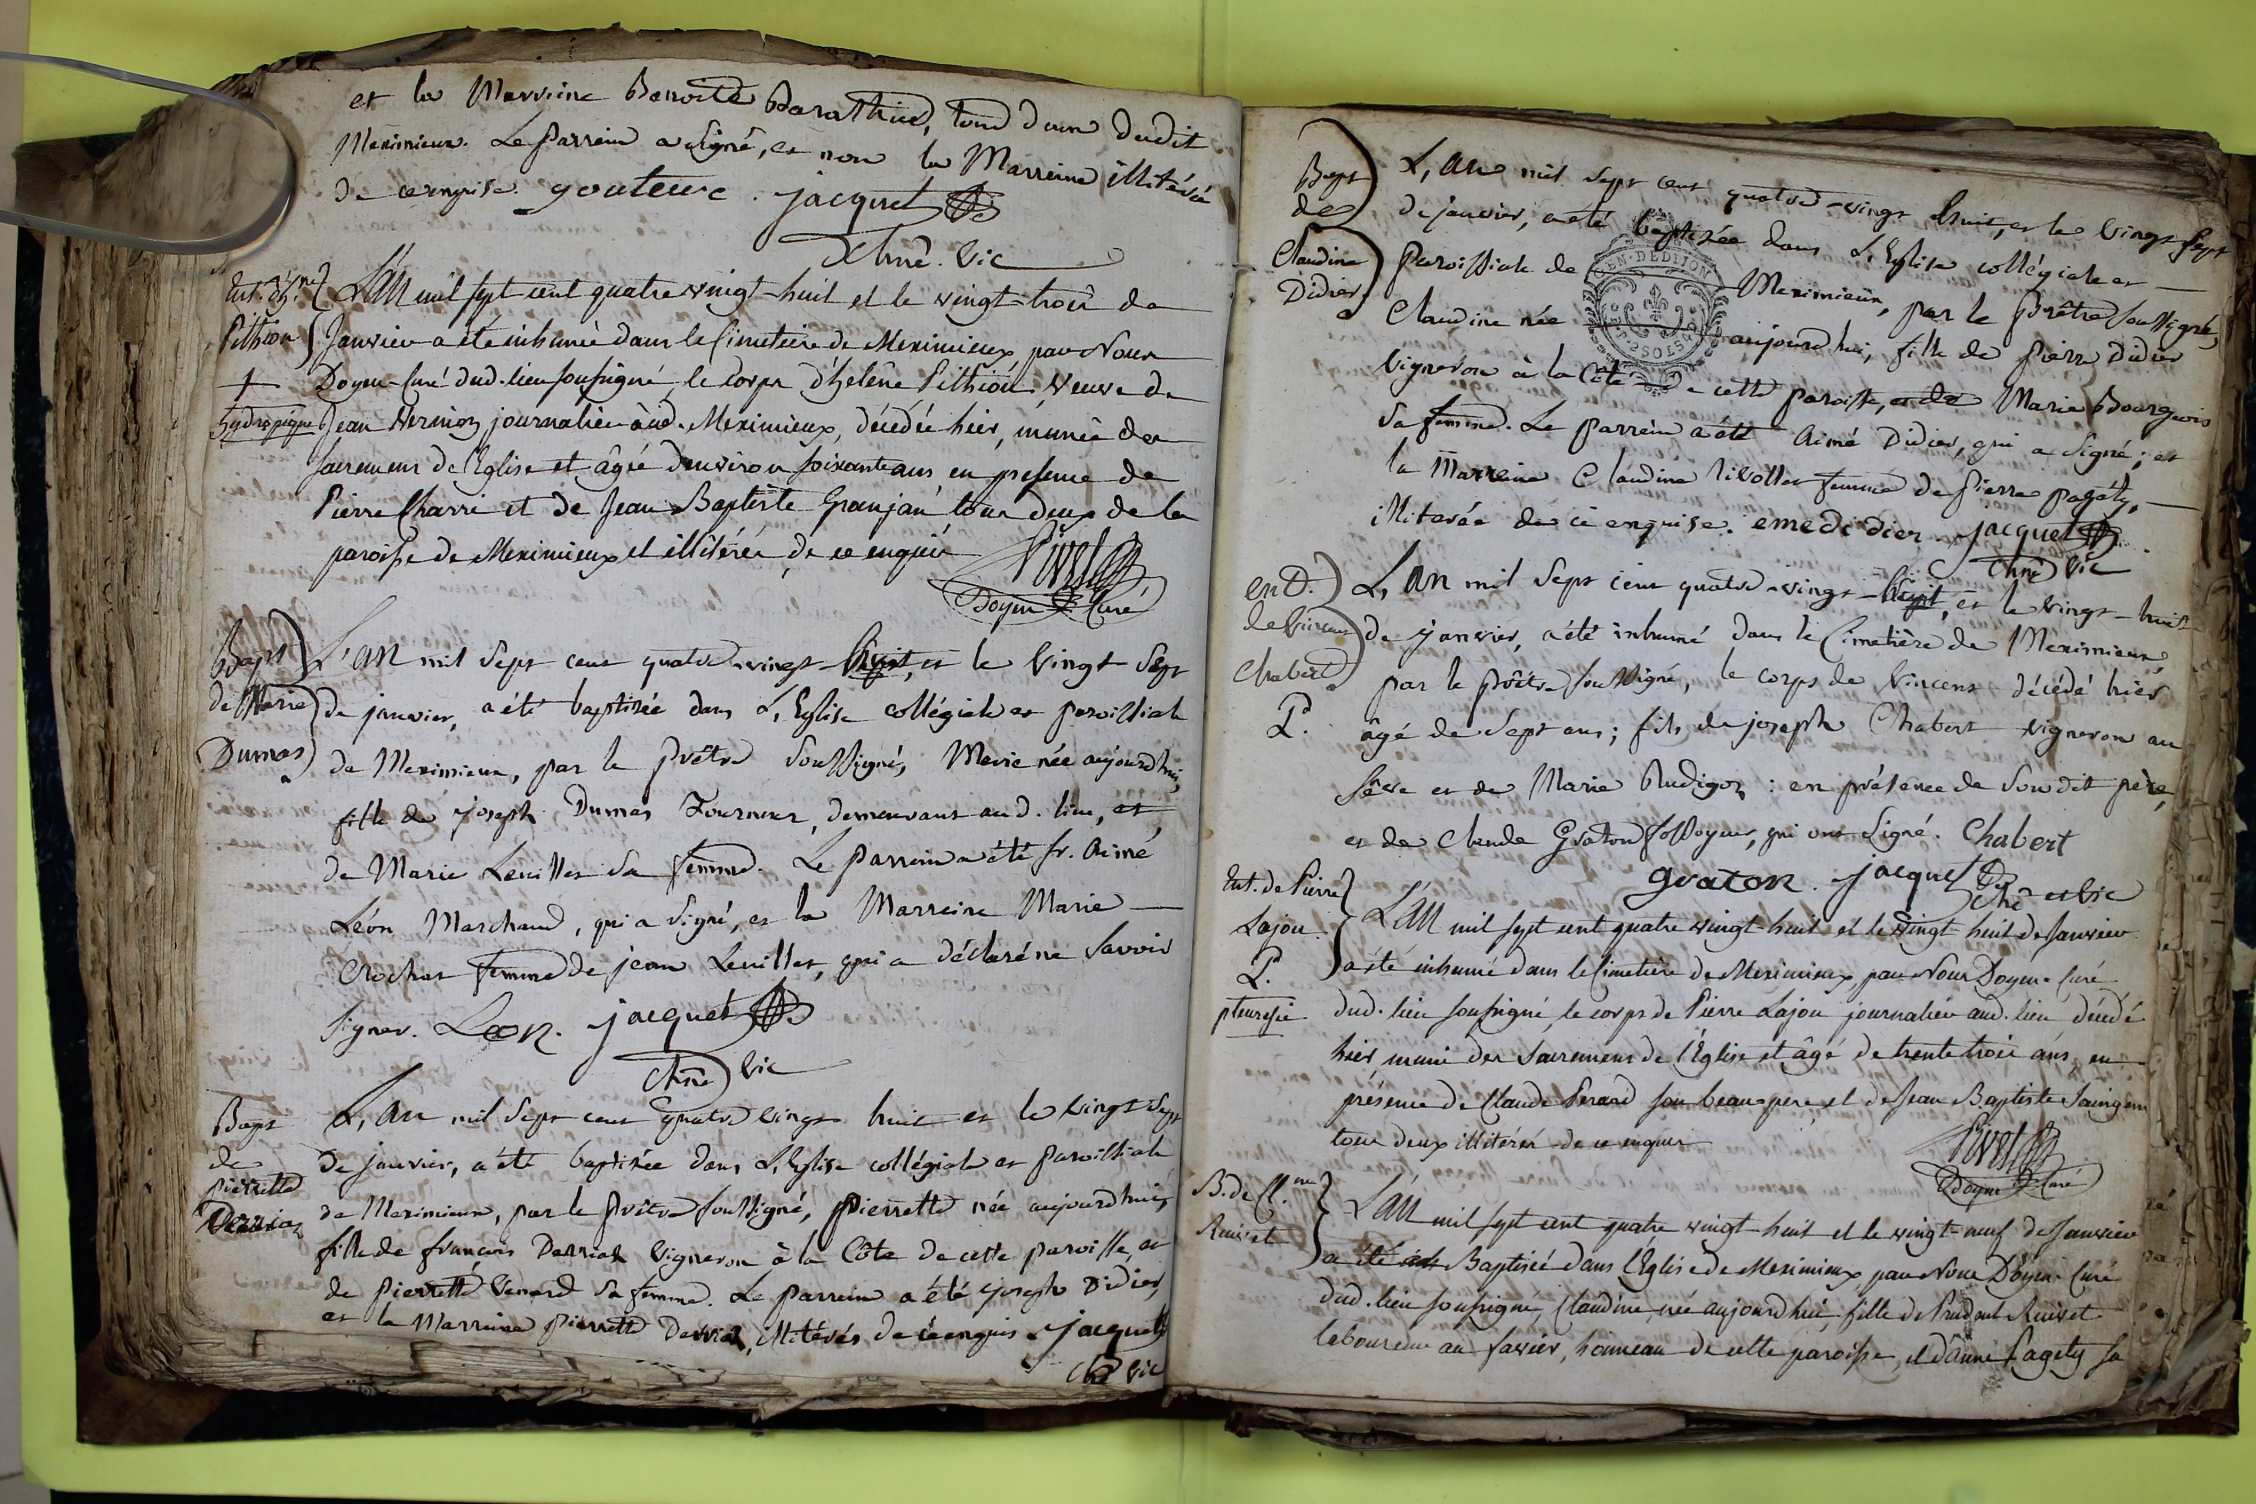 et la Marreine Benoite Barathier, tous deux dudit
Meximieux. Le Parrein a signé, et non la Marreine illitérée
de ce enquise. gouteux. jacquet
Chne. Vic
Ent. d'h.ne
Pithion
+
hydropique
L'an mil sept cent quatre vingt-huit et le vingt-trois de
Janvier a été inhumée dans le Cimetière de Meximieux par Nous
Doyen-Curé dud. lieu soussigné, le Corps d'helène Pithion, veuve de
Jean journalier aud. Meximieux, décédée hier, munie des
sacremens de l'Eglise et âgée d'environ soixante ans en presence de
Pierre Charri et de Jean Baptiste Granjan tous deux de la
paroisse de Meximieux et illitérés de ce enquis
Doyen Curé
Bapt
de Marie
Dumas
L'an mil sept cent quatre-vingt-huit, et le vingt-sept
de janvier, a été baptisée dans L'Eglise collégiale et paroissiale
de Meximieux, par le Prêtre soussigné, Marie née aujourd'hui,
fille de joseph Dumas Tourneur, demeurant aud. lieu, et
de Marie Levillet sa femme. Le parrein a été fr. Aimé
Léon Marchand, qui a signé, et la Marreine Marie
Crochat femme de jean Levillet, qui a déclaré ne savoir
signer. Leon. jacquet
Chne Vic
Bapt
de
pierrette
Derriaz
L'an mil sept cent quatre vingt huit et le vingt-sept
de janvier, a été baptisée dans L'Eglise collégiale et paroissiale
de Meximieux, par le Prêtre soussigné, pierrette née aujourd'hui,
fille de françois Derriaz vigneron à la Côte de cette paroisse, et
de pierrette Venard sa femme. Le parrein a été joseph Didier,
et la Marreine pierrette Derriaz, illitérés de ce enquis. jacquet
Vic
Bapt
de
Claudine
Didier
L'an mil sept cent quatre-vingt huit, et le vingt-sept
de janvier, a été baptisée dans L'Eglise collégiale et
Paroissiale de Meximieux, par le Prêtre soussigné,
Claudine née aujourd'hui, fille de pierre Didier
vigneron à la Côte de cette paroisse, et de Marie Bourgeois
sa femme. Le parrein a été Aimé Didier, qui a signé; et
la Marreine Claudine Rivollet femme de pierre pagety,
illiterée de ce enquise. eme di dier jacquet
Chne Vic
GEN. DE DIJON
ent.
de Vincent
Chabert
P.
L'an mil sept cent quatre-vingt-huit, et le vingt-huit
de janvier, a été inhumé dans le Cimetière de Meximieux,
par le prêtre soussigné, le corps de Vincent décédé hier
âgé de sept ans; fils de joseph Chabert vigneron au
et de Marie Rudigoz: en présence de son dit père,
et de Claude Graton fossoyeur, qui ont signé. Chabert
graton. jacquet
Chne et Vic
Ent. de Pierre
Lajou.
P.
pleuresie
L'an mil sept cent quatre vingt-huit et le vingt-huit de Janvier
a été inhumé dans le Cimetière de Meximieux, par Nous Doyen-Curé
dud. lieu soussigné, le corps de Pierre Lajou journalier aud. lieu décédé
hier, muni des Sacremens de l'Eglise et âgé de trente trois ans, en
présence de Claude Perard son beau-pere, et de Jean Baptiste
tous deux illitérés de ce enquis
Doyen Curé
B. de Cl.ne
Ruivet
L'an mil sept cent quatre vingt-huit et le vingt-neuf de Janvier
a été Baptisée dans l'Eglise de Meximieux par Nous Doyen-Curé
dud. lieu soussigné, Claudine, née aujourd'hui, fille de Prudent Ruivet
laboureur au hameau de cette paroisse, et d'anne Pagety sa